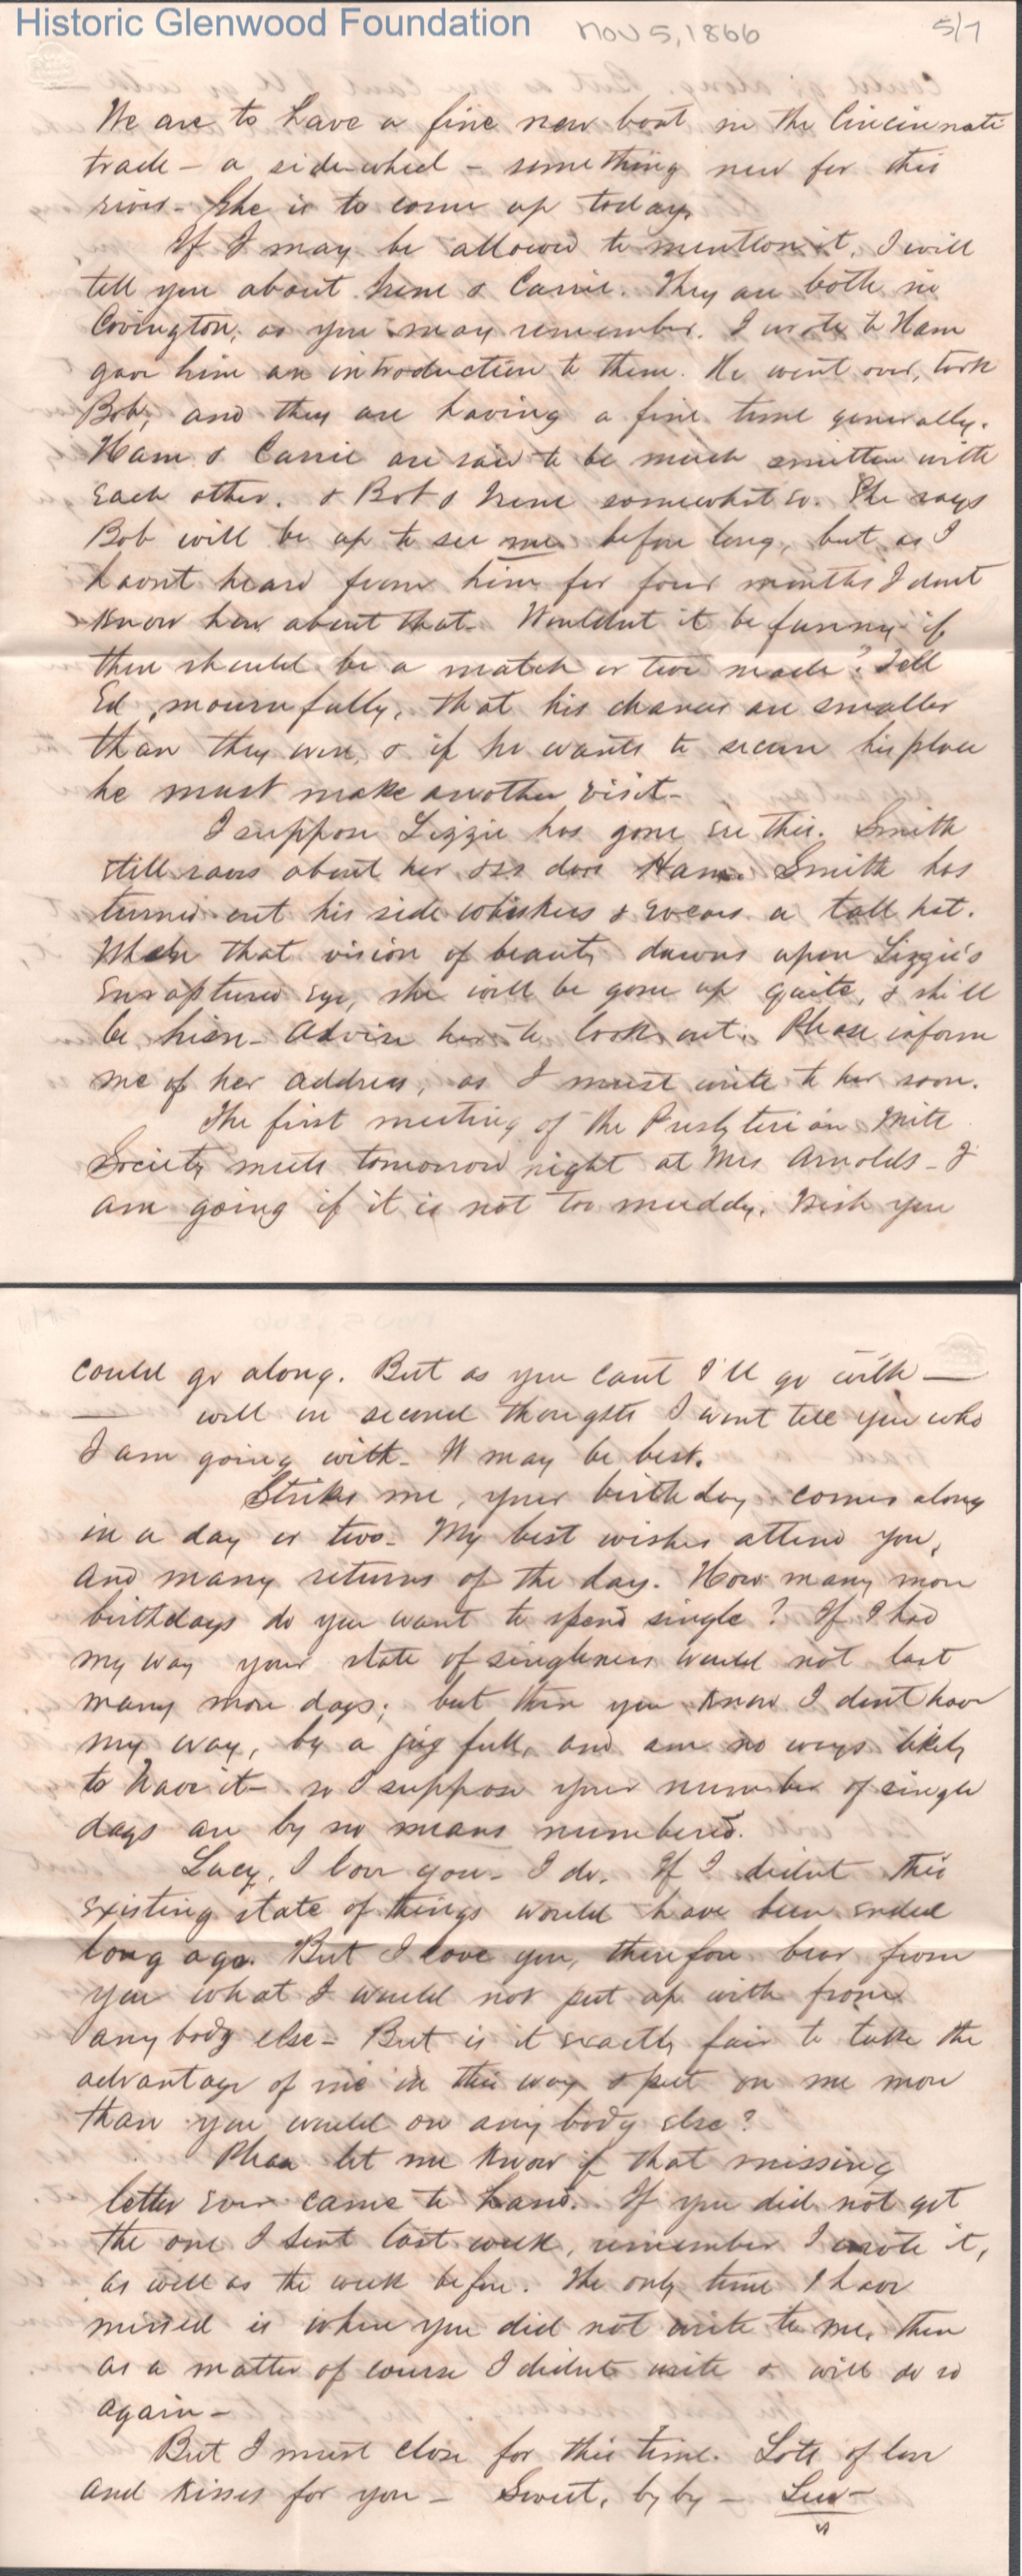 Historic Glenwood Foundation
Nov 5, 1866
5/7
We are to have a fine new boat in the Cincinnati
trade - a sidewheel - something new for this
river. She is to come up today.
If I may be allowed to mention it, I will
tell you about Irene & Carrie. They are both in
Covington, as you may remember. I wrote to Ham
gave him an introduction to them. He went over, took
Bob, and they are having a fine time generally.
Ham & Carrie are said to be much smitten with
each other, & Bob & Irene somewhat so. She says
Bob will be up to see me before long, but as I
havnt heard from him for four months I dont
know how about that. Wouldnt it be funny if
there should be a match or two made? Tell
Ed, mournfully, that his chances are smaller
than they were, & if he wants to secure his place
he must make another visit-
I suppose Lizzie has gone ere this. Smith
still raves about her & so does Ham. Smith has
turned out his side whiskers & wears a tall hat.
When that vision of beauty dawns upon Lizzie's
enraptured eye, she will be gone up quite, & she'll
be hisn - Advise her to look out. Please inform
me of her address, as I must write to her soon.
The first meeting of the Presbyterian Mite
Society meets tomorrow night at Mrs Arnolds - I
am going if it is not too muddy. Wish you
could go along. But as you cant I'll go with —
— well on second thoughts I wont tell you who
I am going with - It may be best.
Strikes me, your birthday comes along
in a day or two - My best wishes attend you,
and many returns of the day. How many more
birthdays do you want to spend single? If I had
my way your state of singleness would not last
many more days; but then you know I dont have
my way, by a jug full, and am no ways likely
to have it - so I suppose your number of single
days are by no means numbered.
Lucy, I love you - I do. If I didnt this
existing state of things would have been ended
long ago. But I love you, therefore bear from
you what I would not put up with from
anybody else - But is it exactly fair to take the
advantage of me in this way & put on me more
than you would on any body else?
Please let me know if that missing
letter ever came to hand. If you did not get
the one I sent last week, remember I wrote it,
as well as the week before. The only time I have
missed is when you did not write to me, then
as a matter of course I didnt write & will do so
again -
But I must close for this time. Lots of love
and kisses for you - Sweet, by by - Lew -